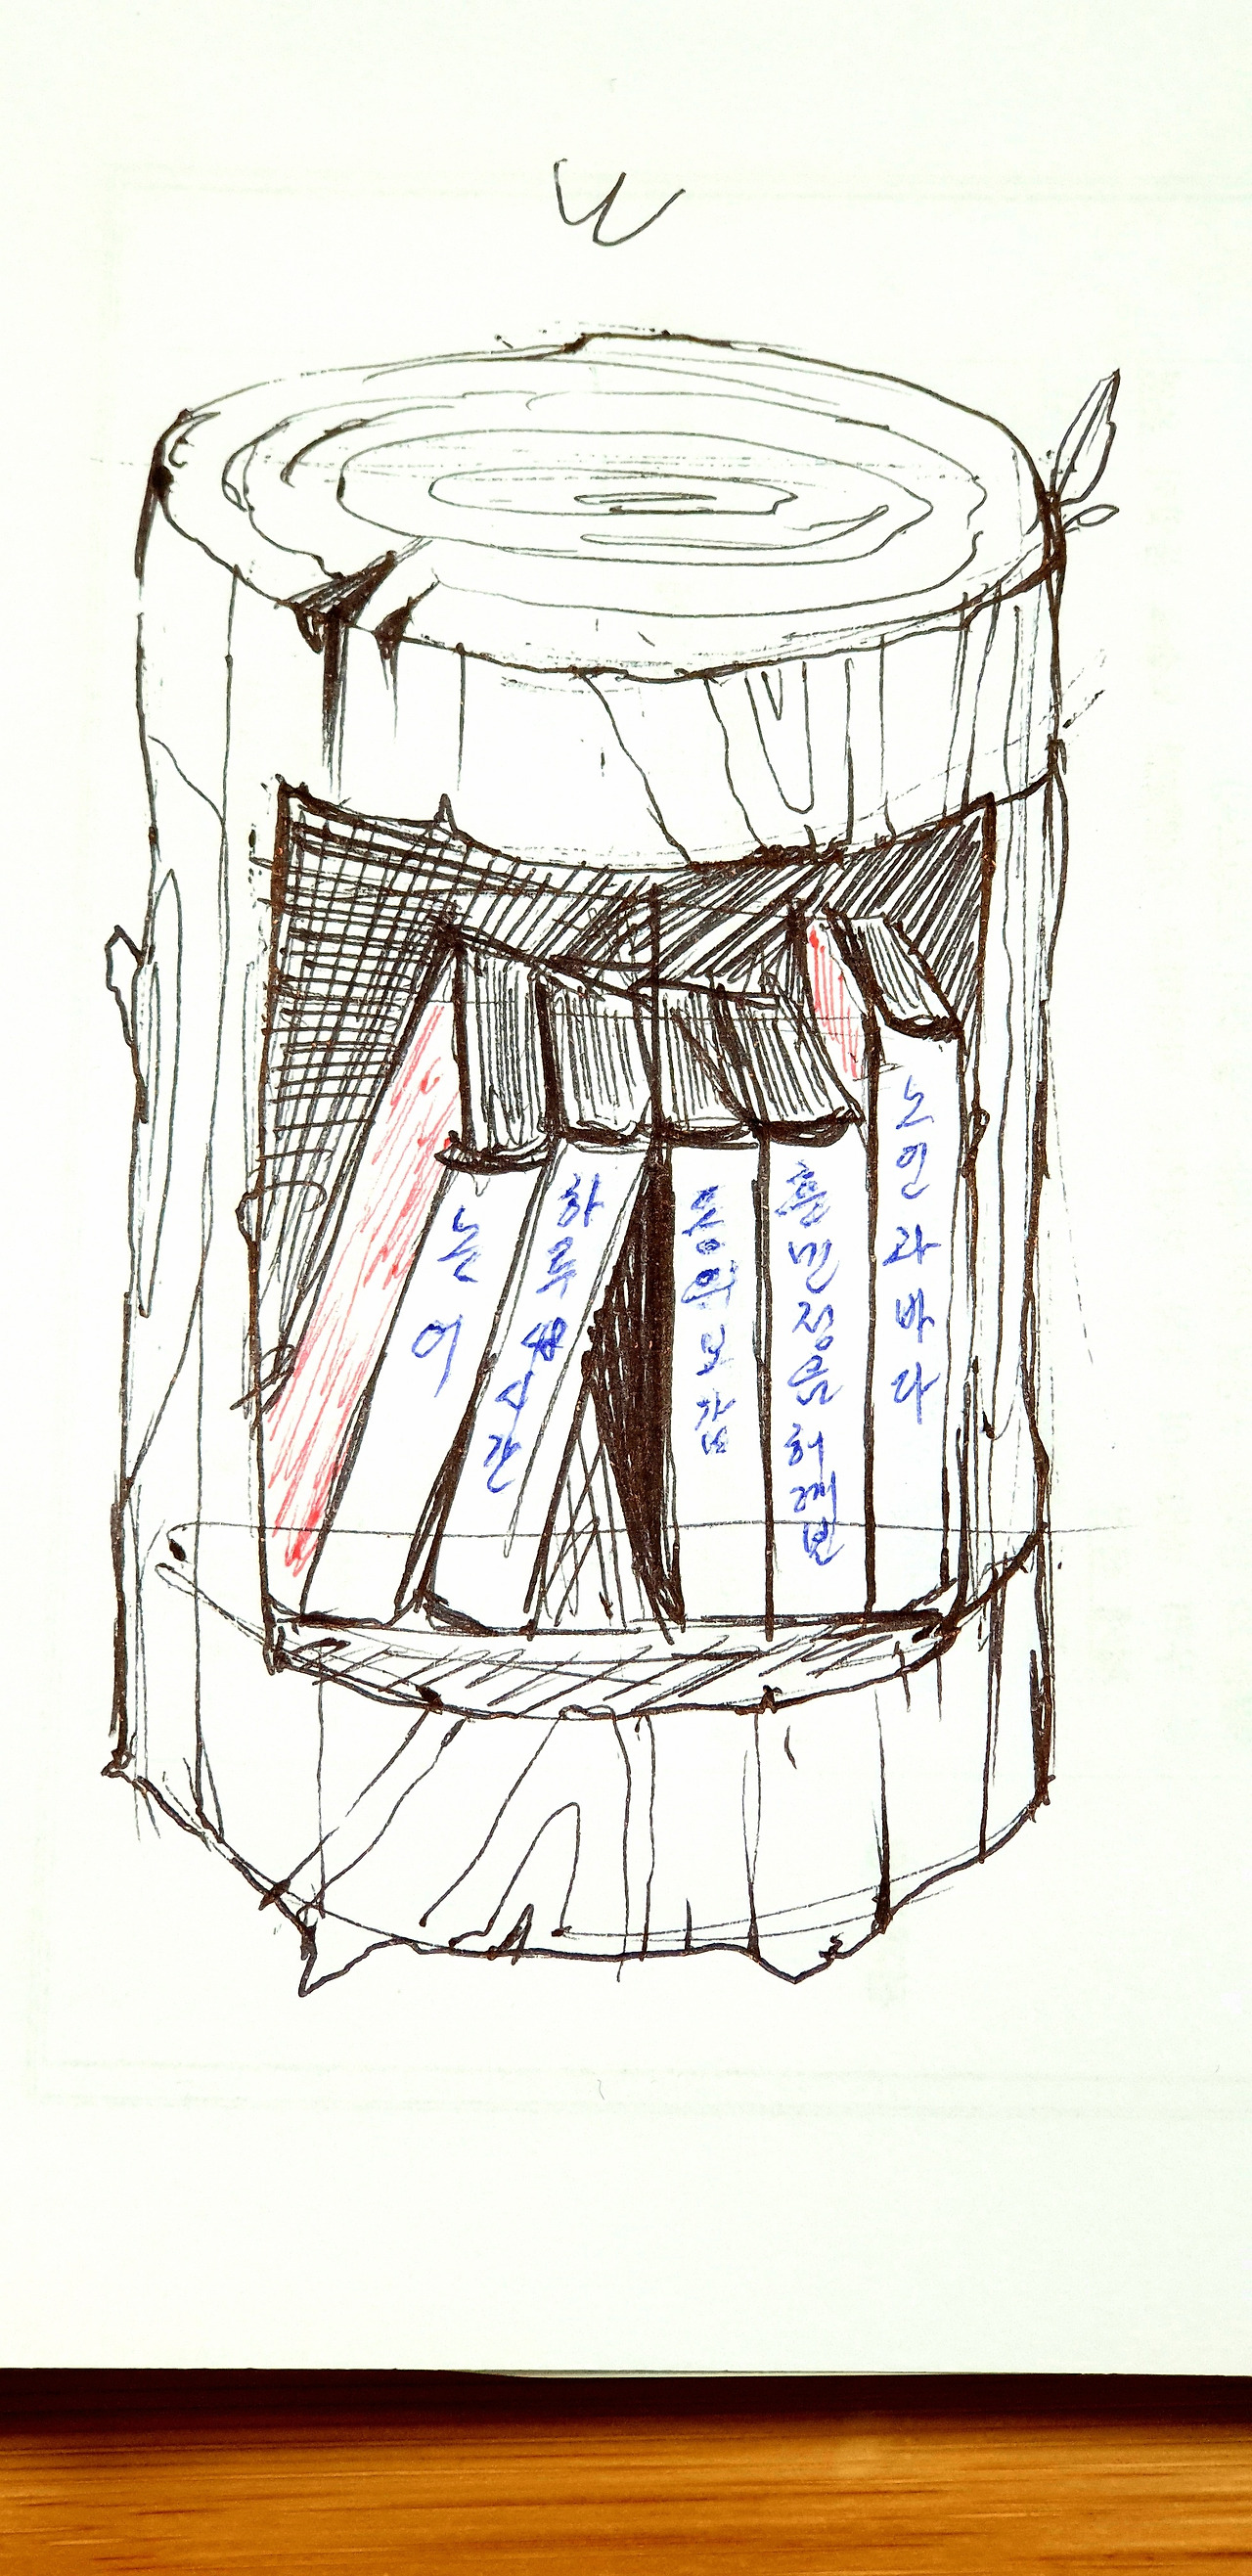 W
논어
하루 48시간
동의보감
훈민정음 허례본
노인과바다